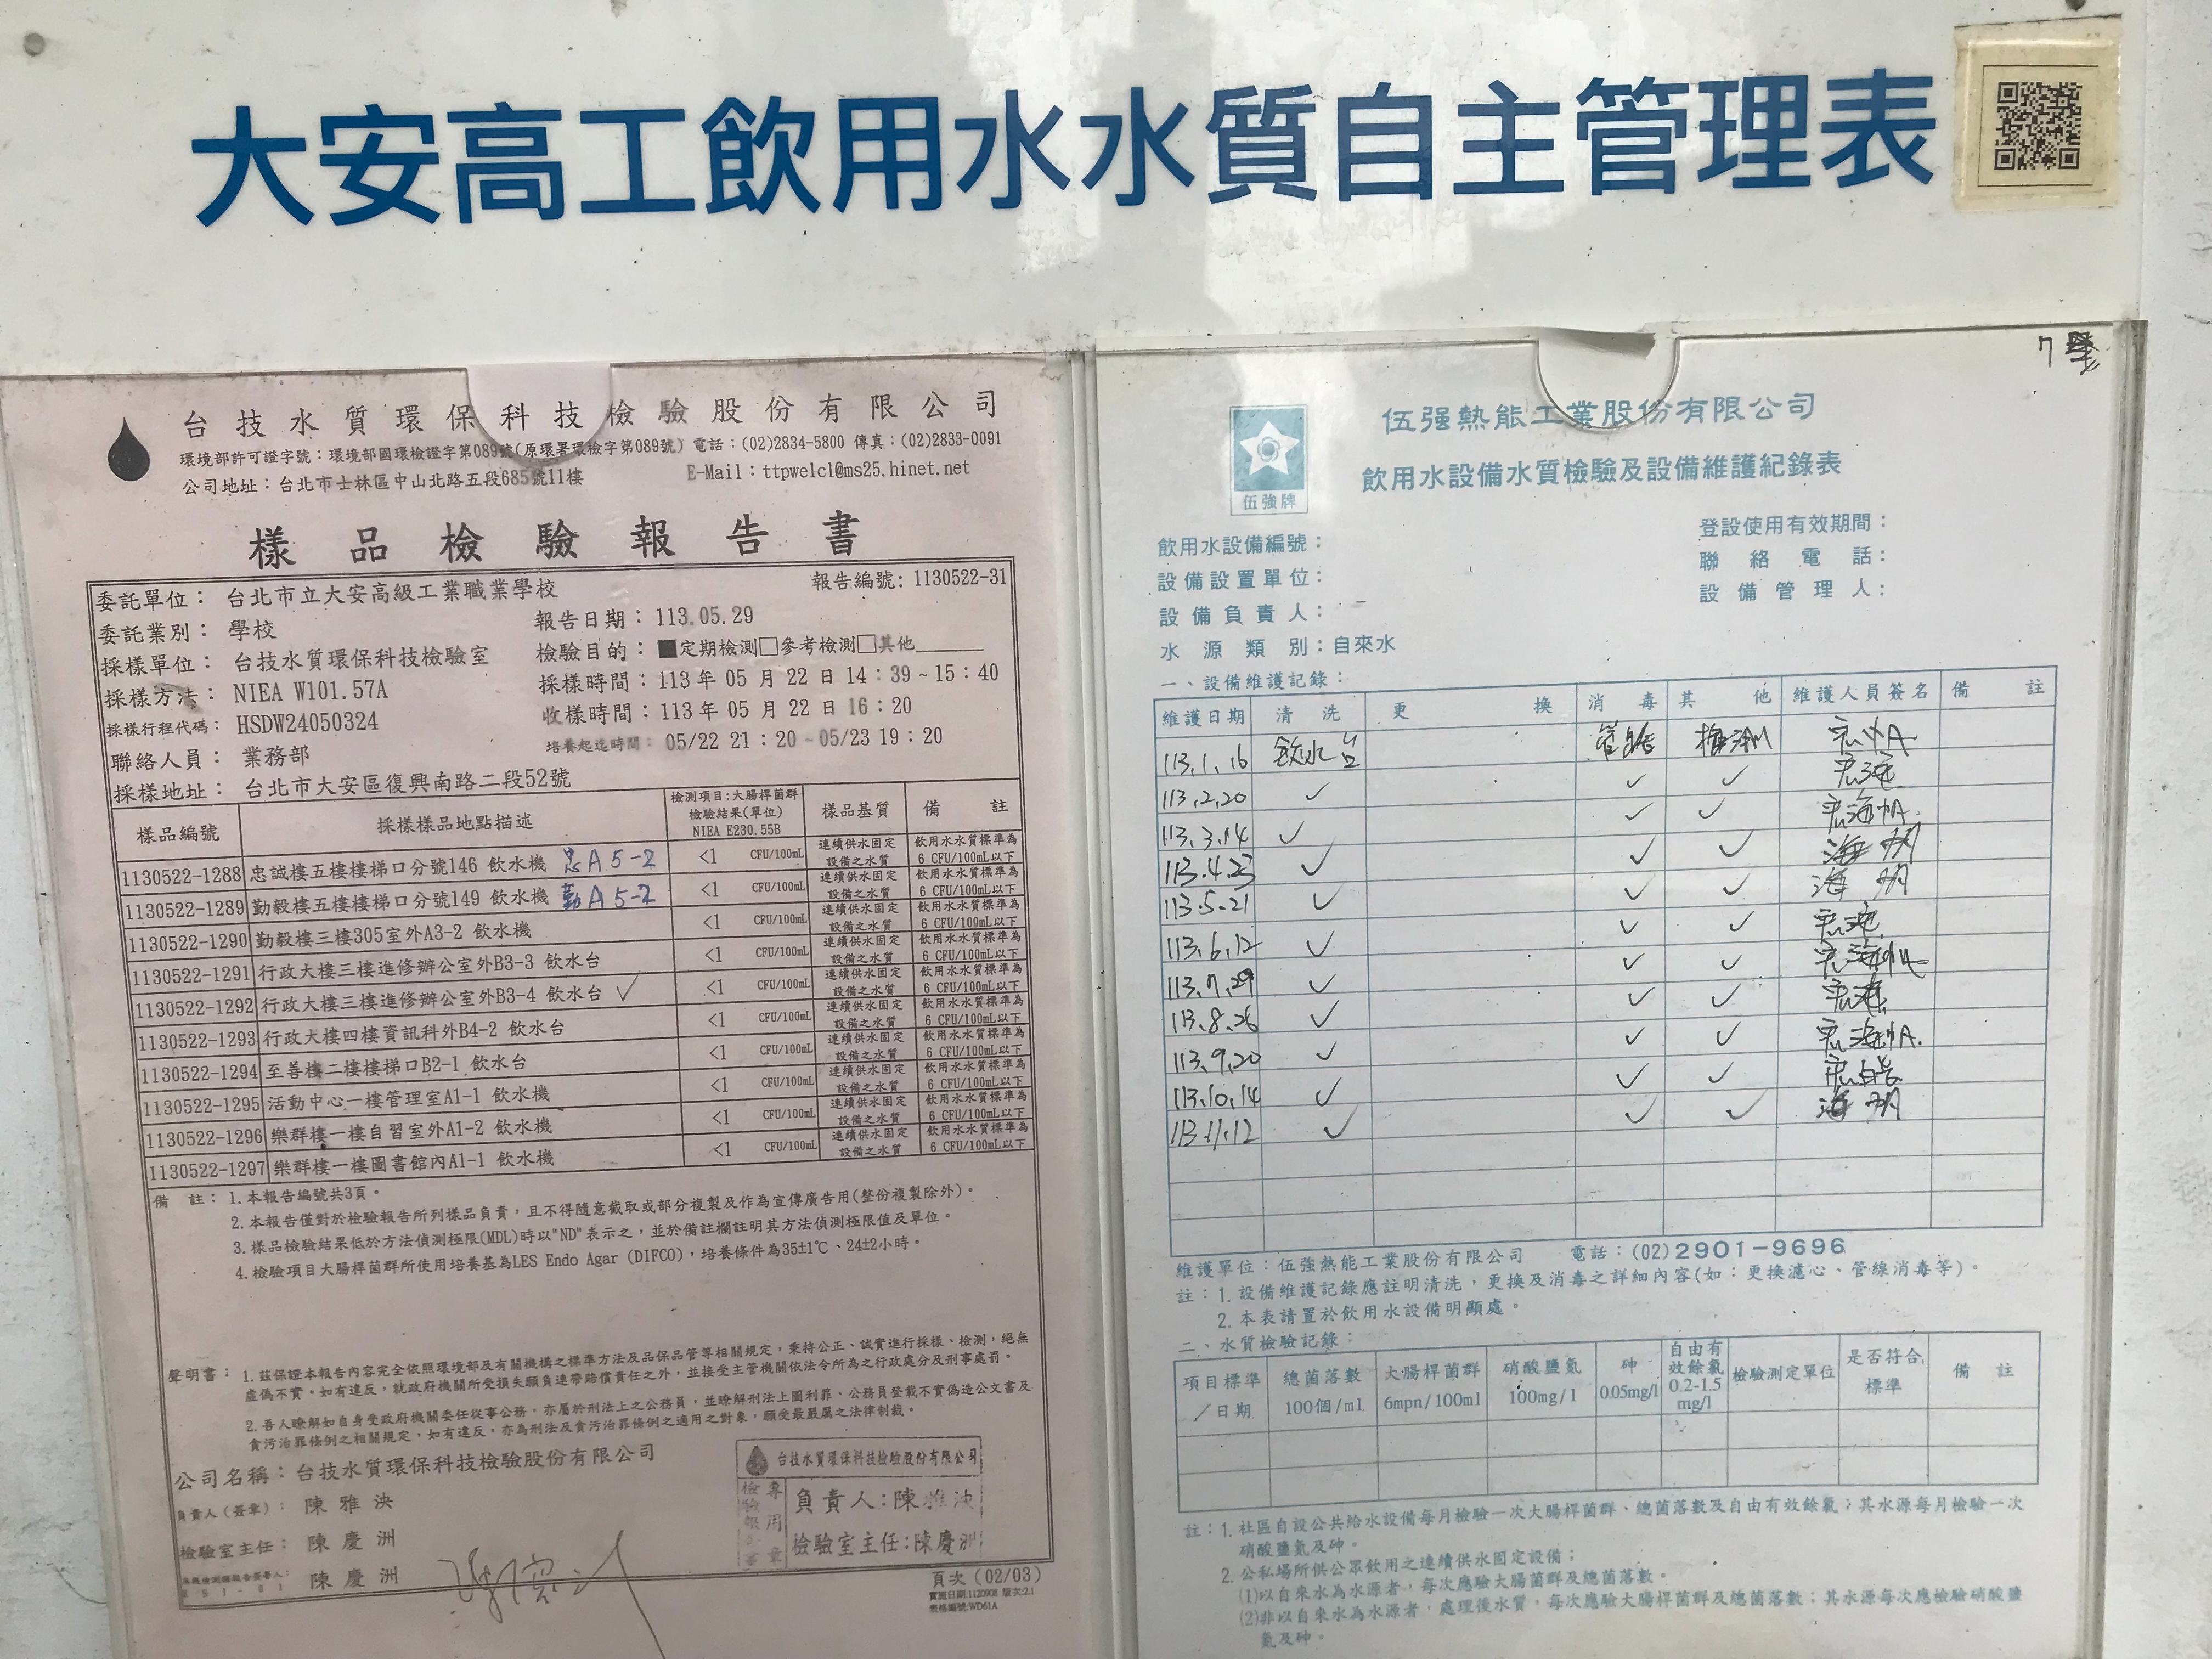 大安高工飲用水水質自主管理表
台技水質環保科技檢驗股份有限公司
環境部許可證字號：環境部國環檢證字第089號(原環署環檢字第089號) 電話：(02)2834-5800 傳真：(02)2833-0091
公司地址：台北市士林區中山北路五段685號11樓 E-Mail：ttpwelcl@ms25.hinet.net
樣品檢驗報告書
委託單位： 台北市立大安高級工業職業學校 報告編號：1130522-31
委託業別： 學校 報告日期：113.05.29
採樣單位： 台技水質環保科技檢驗室 檢驗目的：■定期檢測□參考檢測□其他
採樣方法： NIEA W101.57A 採樣時間：113 年 05 月 22 日 14：39～15：40
採樣行程代碼： HSDW24050324 收樣時間：113 年 05 月 22 日 16：20
聯絡人員： 業務部 培養起迄時間： 05/22 21：20～05/23 19：20
採樣地址： 台北市大安區復興南路二段52號
樣品編號 採樣樣品地點描述 檢測項目：大腸桿菌群 檢驗結果(單位) NIEA E230.55B 樣品基質 備註
1130522-1288 忠誠樓五樓樓梯口分號146 飲水機 忠A5-2 <1 CFU/100mL 連續供水固定設備之水質 飲用水水質標準為 6 CFU/100mL以下
1130522-1289 勤毅樓五樓樓梯口分號149 飲水機 勤A5-2 <1 CFU/100mL 連續供水固定設備之水質 飲用水水質標準為 6 CFU/100mL以下
1130522-1290 勤毅樓三樓305室外A3-2 飲水機 <1 CFU/100mL 連續供水固定設備之水質 飲用水水質標準為 6 CFU/100mL以下
1130522-1291 行政大樓三樓進修辦公室外B3-3 飲水台 <1 CFU/100mL 連續供水固定設備之水質 飲用水水質標準為 6 CFU/100mL以下
1130522-1292 行政大樓三樓進修辦公室外B3-4 飲水台 ✓ <1 CFU/100mL 連續供水固定設備之水質 飲用水水質標準為 6 CFU/100mL以下
1130522-1293 行政大樓四樓資訊科外B4-2 飲水台 <1 CFU/100mL 連續供水固定設備之水質 飲用水水質標準為 6 CFU/100mL以下
1130522-1294 至善樓二樓樓梯口B2-1 飲水台 <1 CFU/100mL 連續供水固定設備之水質 飲用水水質標準為 6 CFU/100mL以下
1130522-1295 活動中心一樓管理室A1-1 飲水機 <1 CFU/100mL 連續供水固定設備之水質 飲用水水質標準為 6 CFU/100mL以下
1130522-1296 樂群樓一樓自習室外A1-2 飲水機 <1 CFU/100mL 連續供水固定設備之水質 飲用水水質標準為 6 CFU/100mL以下
1130522-1297 樂群樓一樓圖書館內A1-1 飲水機 <1 CFU/100mL 連續供水固定設備之水質 飲用水水質標準為 6 CFU/100mL以下
備 註：1.本報告編號共3頁。
2.本報告僅對於檢驗報告所列樣品負責，且不得隨意截取或部分複製及作為宣傳廣告用(整份複製除外)。
3.樣品檢驗結果低於方法偵測極限(MDL)時以"ND"表示之，並於備註欄註明其方法偵測極限值及單位。
4.檢驗項目大腸桿菌群所使用培養基為LES Endo Agar (DIFCO)，培養條件為35±1℃、24±2小時。
聲明書：1.茲保證本報告內容完全依照環境部及有關機構之標準方法及品保品管等相關規定，秉持公正、誠實進行採樣、檢測，絕無
虛偽不實。如有違反，就政府機關所受損失願負連帶賠償責任之外，並接受主管機關依法令所為之行政處分及刑事處罰。
2.吾人瞭解如自身受政府機關委任從事公務，亦屬於刑法上之公務員，並瞭解刑法上圖利罪、公務員登載不實偽造公文書及
貪污治罪條例之相關規定，如有違反，亦為刑法及貪污治罪條例之適用之對象，願受最嚴厲之法律制裁。
公司名稱：台技水質環保科技檢驗股份有限公司
負責人(簽章)： 陳雅泱
檢驗室主任： 陳慶洲
陳慶洲
台技水質環保科技檢驗股份有限公司
負責人：陳雅泱
檢驗室主任：陳慶洲
頁次 (02/03)
實施日期:1120908 版次:2.1
表格編號:WD61A
伍强熱能工業股份有限公司
伍強牌
飲用水設備水質檢驗及設備維護紀錄表
飲用水設備編號： 登設使用有效期間：
設備設置單位： 聯絡電話：
設備負責人： 設備管理人：
水源類別：自來水
一、設備維護記錄：
維護日期 清洗 更換 消毒 其他 維護人員簽名 備註
113.1.16 飲水台
113.2.20 ✓ ✓ ✓
113.3.14 ✓ ✓ ✓
113.4.23 ✓ ✓ ✓
113.5.21 ✓ ✓ ✓
113.6.12 ✓ ✓ ✓
113.7.29 ✓ ✓ ✓
113.8.26 ✓ ✓ ✓
113.9.20 ✓ ✓ ✓
113.10.14 ✓ ✓ ✓
113.11.12 ✓ ✓ ✓
維護單位：伍強熱能工業股份有限公司 電話：(02)2901-9696
註：1.設備維護記錄應註明清洗，更換及消毒之詳細內容(如：更換濾心、管線消毒等)。
2.本表請置於飲用水設備明顯處。
二、水質檢驗記錄：
項目標準／日期 總菌落數 100個/ml 大腸桿菌群 6mpn/100ml 硝酸鹽氮 100mg/l 砷 0.05mg/l 自由有效餘氯 0.2-1.5 mg/l 檢驗測定單位 是否符合標準 備註
註：1.社區自設公共給水設備每月檢驗一次大腸桿菌群、總菌落數及自由有效餘氯；其水源每月檢驗一次
硝酸鹽氮及砷。
2.公私場所供公眾飲用之連續供水固定設備；
(1)以自來水為水源者，每次應驗大腸菌群及總菌落數。
(2)非以自來水為水源者，處理後水質，每次應驗大腸桿菌群及總菌落數；其水源每次應檢驗硝酸鹽
氮及砷。